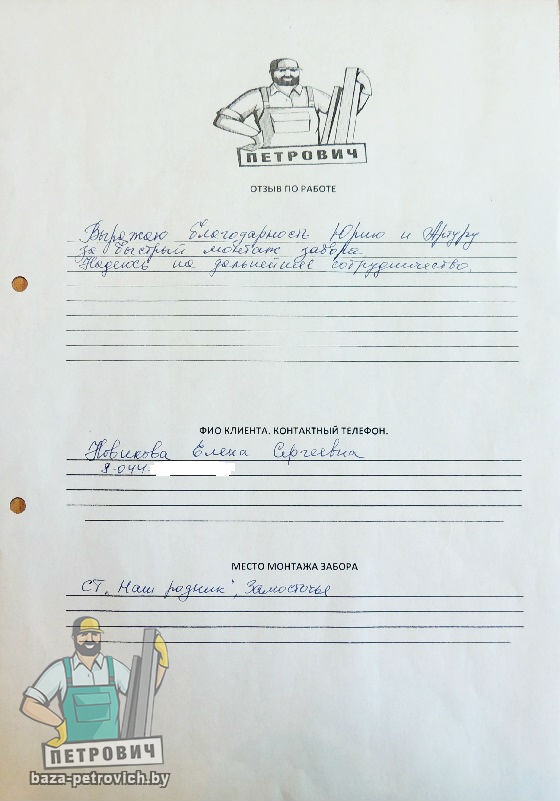 ПЕТРОВИЧ
ОТЗЫВ ПО РАБОТЕ
Выражаю благодарность Юрию и Артуру
за быстрый монтаж забора.
Надеюсь на дальнейшее сотрудничество.
ФИО КЛИЕНТА. КОНТАКТНЫЙ ТЕЛЕФОН.
Новикова Елена Сергеевна
8-044-
МЕСТО МОНТАЖА ЗАБОРА
СТ "Наш родник", Замосточье
ПЕТРОВИЧ
baza-petrovich.by